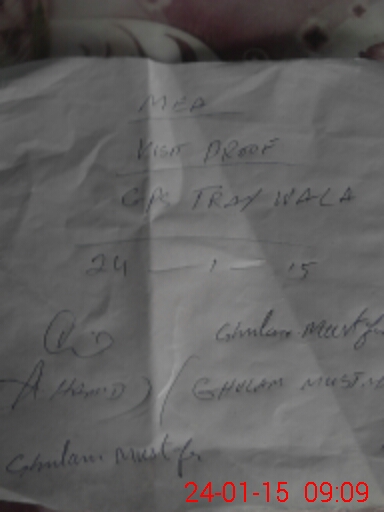 MEA
VISIT PROOF
GPS TRAY WALA
24 — 1 — 15
Ghulam Mustf
GHULAM MUSTA
Ghulam Mustfa
24-01-15 09:09